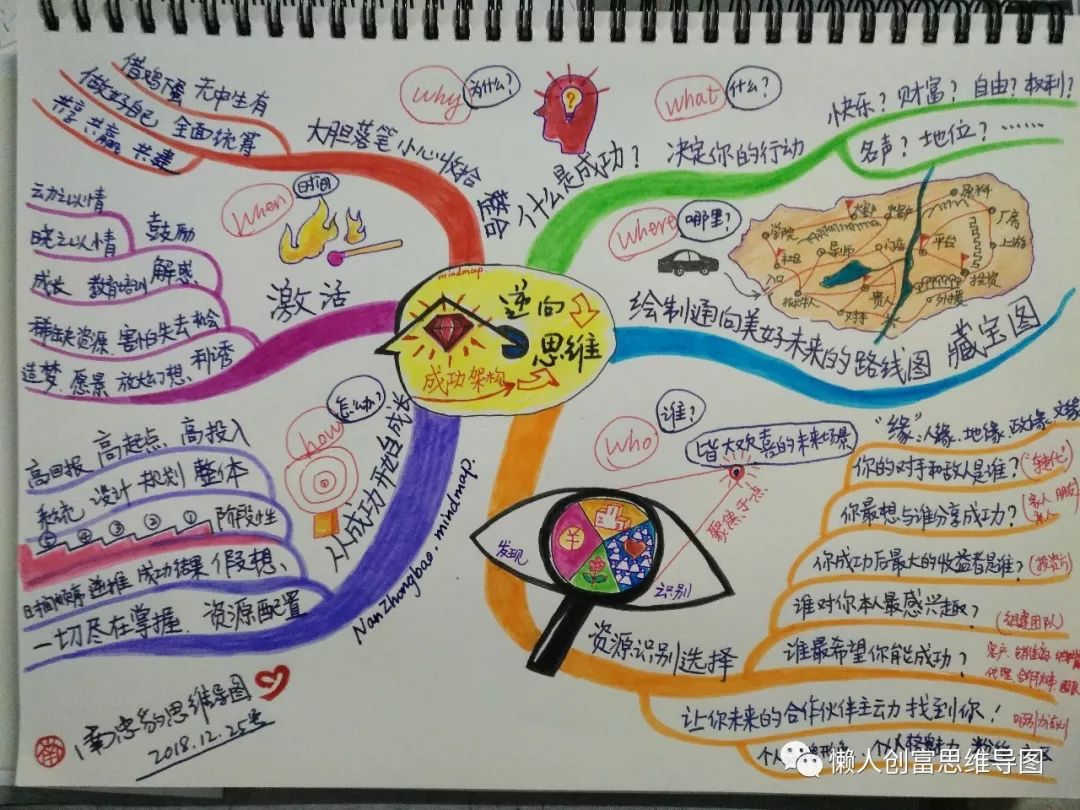 mindmap
逆向
思维
成功架构
what 什么?
什么是成功? 决定你的行动
快乐? 财富? 自由? 权利?
名声? 地位? ……
where 哪里?
绘制通向美好未来的路线图 藏宝图
学院
社区
入口
导师
门店
平台
原料
厂房
上游
投资
贵人
对手
who 谁?
皆大欢喜的未来场景
聚焦于一点
发现
识别
资源识别选择
"缘":人缘、地缘、政缘、文缘
你的对手和敌人是谁?
你最想与谁分享成功? (家人 朋友
你成功后最大的收益者是谁? (投资
谁对你本人最感兴趣? (组建团队)
谁最希望你能成功?
代理、合作伙伴、团队
让你未来的合作伙伴主动找到你!
how 怎么办?
从成功开始自成长
高回报 高起点 高投入
系统 设计 规划 整体
③ ② ① 阶段性
倒推 成功结果 假想、
一切尽在掌握、资源配置
when 时间
激活
动之以情
晓之以情 鼓励
成长 教育培训 解惑、
稀缺资源、害怕失去机会
造梦、愿景 放大幻想、利诱
why 为什么?
大胆落笔 小心收拾
借鸡下蛋 无中生有
做好自己 全面统筹
共赢 共建
NanZhongbao.mindmap.
思维导图
2018.12.25
懒人创富思维导图